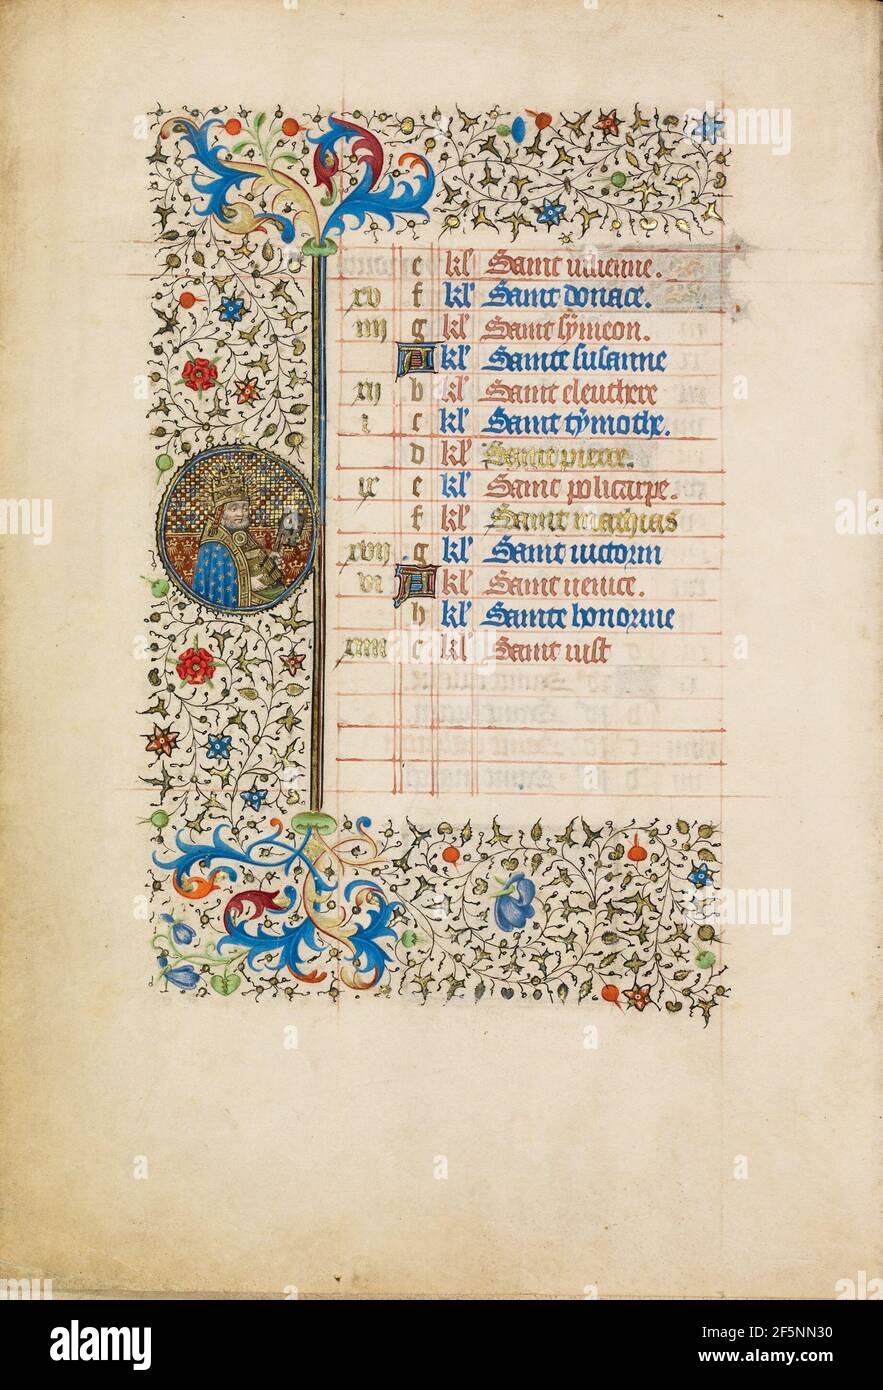 e kł Saint iulienne.
xv f kł Saint donace.
iiij g kł Saint symeon.
A kł Saincte susanne
xij b kł Saint eleuthere
i c kł Saint tymothe.
d kł Saint pierre.
ix e kł Saint policarpe.
f kł Saint mathias
xvij g kł Saint victorin
vi A kł Saint venice.
b kł Saincte honorine
xiiii c kł Saint iust
alamy
Image ID: 2F5NN30
www.alamy.com